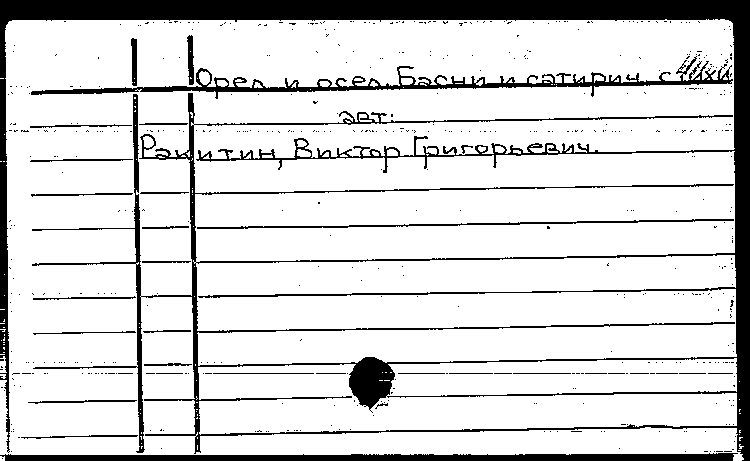 Орел и осел. Басни и сатирич. стихи
авт:
Ракитин, Виктор Григорьевич.